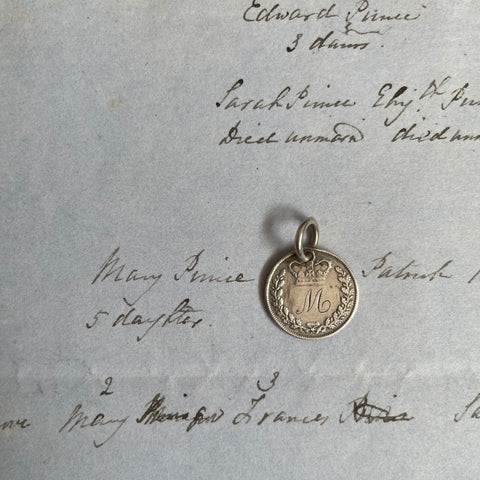 Edward Prince
3 daurs.
Sarah Prince Eliz.th Prin
Died unmard died unm
Mary Prince Patrick
M
5 daughters.
2 3
Mary Frances Sa